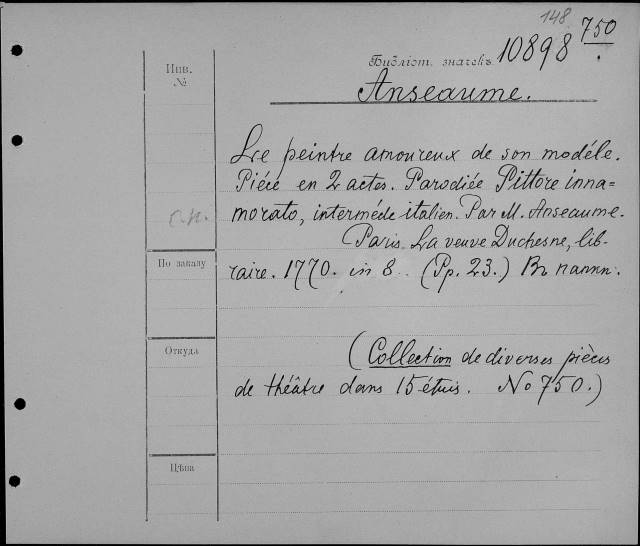 148
750
Инв.
№
Библіот. значекъ 10898
Anseaume.
Le peintre amoureux de son modéle.
Piéce en 2 actes. Parodiée Pittore inna=
morato, interméde italien. Par M. Anseaume.
Paris. La veuve Duchesne, lib-
raire. 1770. in 8. (Pp. 23.) Въ папкѣ.
С.П.
По заказу
Откуда
(Collection de diverses pièces
de théâtre dans 15 étuis. No 750.)
Цѣна